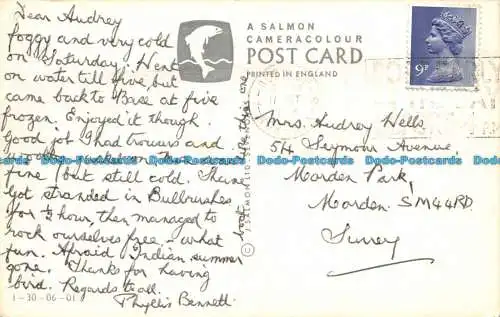 Dear Audrey
foggy and very cold
on Saturday. Went
on water till five, but
came back to Base at five
frozen. Enjoyed it though.
Good job I had trousers and
fine / but still cold. Shame
got stranded in Bullrushes
for ½ hour, then managed to
rock ourselves free - what
fun. Afraid Indian summer
gone. Thanks for having
bird. Regards to all.
Phyllis Bennett
1-30-06-01
A SALMON
CAMERACOLOUR
POST CARD
PRINTED IN ENGLAND
© J SALMON LTD
9P
Mrs. Audrey Wells,
54 Seymour Avenue,
Morden Park,
Morden. SM4 4RD.
Surrey
Dodo-Postcards Dodo-Postcards Dodo-Postcards Dodo-Postcards